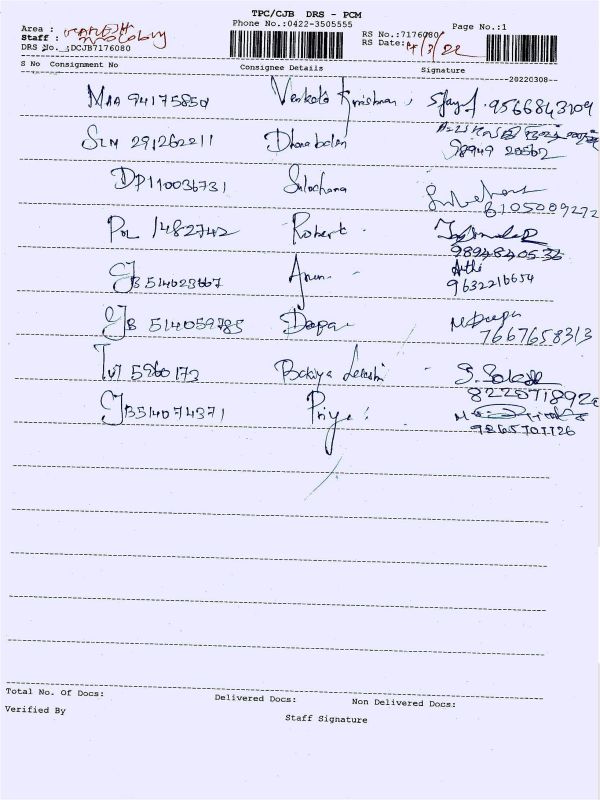 TPC/CJB DRS - PCM
Phone No.:0422-3505555
Page No.:1
Area :
Staff :
RS No.:7176080
DRS No. :DCJB7176080
RS Date:
S No Consignment No Consignee Details Signature
--20220308--
MAA 94175850 Venkata Krishnan 9566843109
SLM 291262211 Dhanabalan 98949 20562
DP110036731 Sulochana 8105009272
POL 1482742 Robert
9894840532
Arthi
CJB 514623667 Arun 9632216654
CJB 514059785 Deepa M.Deepa
7667658313
TVI 5960172 Bakiya
CJB514074371 Priya
Total No. Of Docs: Delivered Docs: Non Delivered Docs:
Verified By Staff Signature